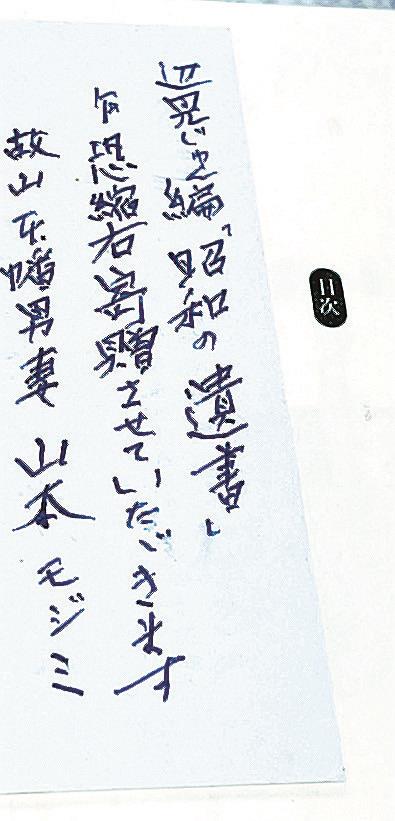 目次
辺見じゅん編「昭和の遺書」
乍恐縮右寄贈させていただきます
故山本幡男妻 山本モジミ